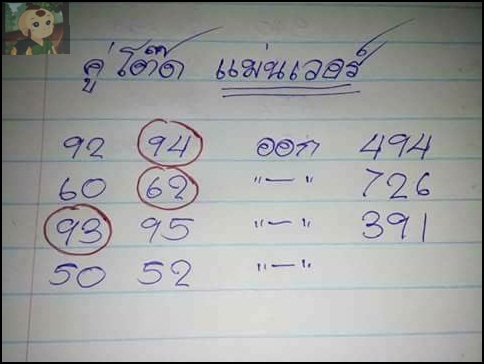 คู่โต๊ด แม่นเวอร์
92 94 ออก 494
60 62 "—" 726
93 95 "—" 391
50 52 "—"